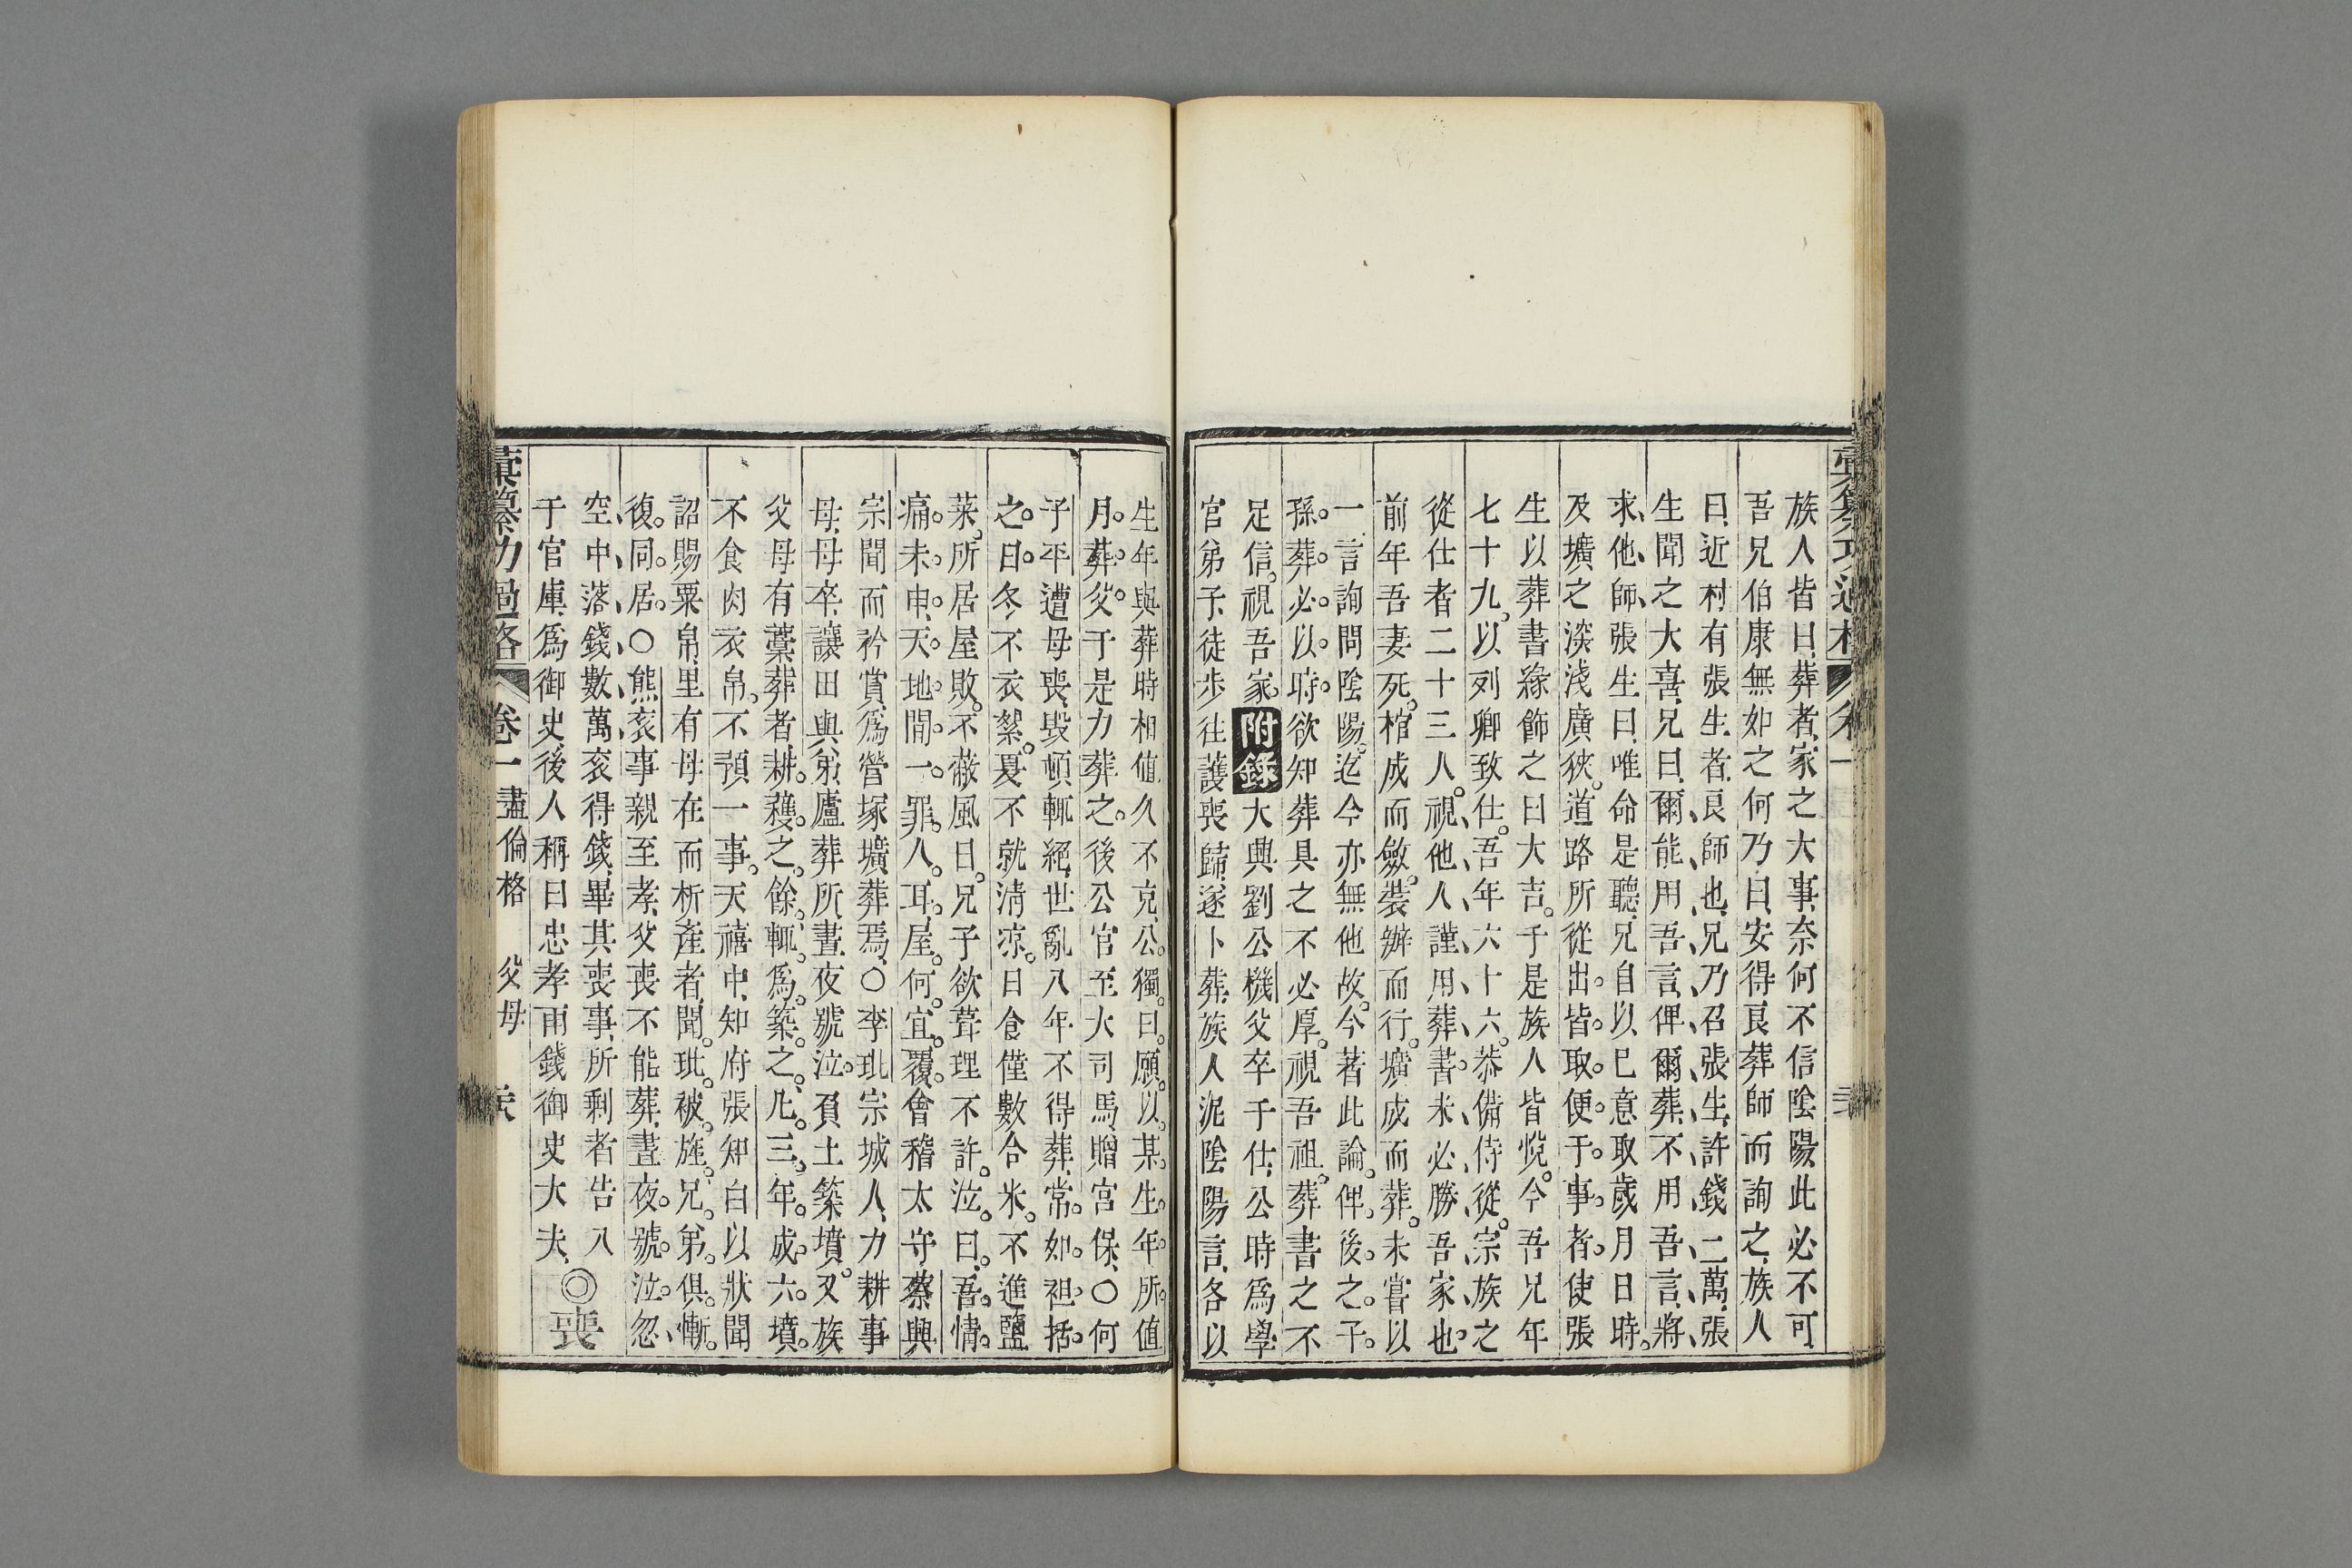 族人皆曰、葬者家之大事、奈何不信陰陽、此必不可
吾兄伯康無如之何、乃曰、安得良葬師而詢之、族人
曰、近村有張生者、良師也、兄乃召張生、許錢二萬、張
生聞之大喜、兄曰、爾能用吾言、俾爾葬、不用吾言、將
求他師、張生曰、唯命是聽、兄自以已意取歲月日時。
及壙之深淺廣狹。道路所從出。皆取便于事者。使張
生以葬書緣飾之曰大吉。于是族人皆悅。今吾兄年
七十九。以列卿致仕。吾年六十六。恭備侍從。宗族之
從仕者二十三人。視他人謹用葬書。未必勝吾家也。
前年吾妻死。棺成而斂。裝辦而行。壙成而葬。未嘗以
一言詢問陰陽。迄今亦無他故。今著此論。俾後之子。
孫葬必以時。欲知葬具之不必厚。視吾祖。葬書之不
足信。視吾家。附錄大興劉公機父卒于仕、公時爲學
官弟子、徒步往護喪歸、遂卜葬、族人泥陰陽言、各以
生年與葬時相値、久不克、公獨曰。願以某生年所値
月葬父、于是力葬之。後公官至大司馬、贈宮保、○何
子平遭母喪、毀頓輒絕、世亂八年不得葬、常如袒括。
之日。冬不衣絮。夏不就清涼。日食僅數合米。不進鹽
菜。所居屋敗。不蔽風日。兄子欲葺理、不許。泣曰。吾情
痛未申、天地間一罪人耳。屋何宜覆。會稽太守蔡興
宗聞而矜賞、爲營塚壙葬焉、○李玭宗城人、力耕事
母、母卒、讓田與弟、廬葬所、晝夜號泣。負土築墳。又族
父母有藁葬者、耕穫之餘、輒爲築之。凡三年。成六墳。
不食肉衣帛。不預一事。天禧中、知府張知白以狀聞
詔賜粟帛、里有母在而析產者、聞玭被旌。兄弟俱慚。
復同居。○熊衮事親至孝、父喪不能葬、晝夜號泣。忽
空中落錢數萬、衮得錢、畢其喪事、所剩者告入
于官庫、爲御史、後人稱曰忠孝雨錢御史大夫、◎喪
彙纂功過格 卷一 盡倫格 父母